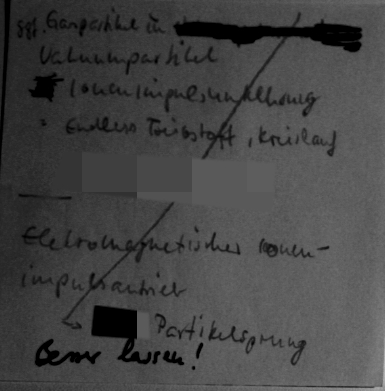 ggf. Ganpartikel in
Vakuumpartikel
Ionenimpulsumkehrung
Endloss Treibstoff, Kreislauf
Elektromagnetischer Ionen-
impulsantrieb
Partikelsprung
lassen!